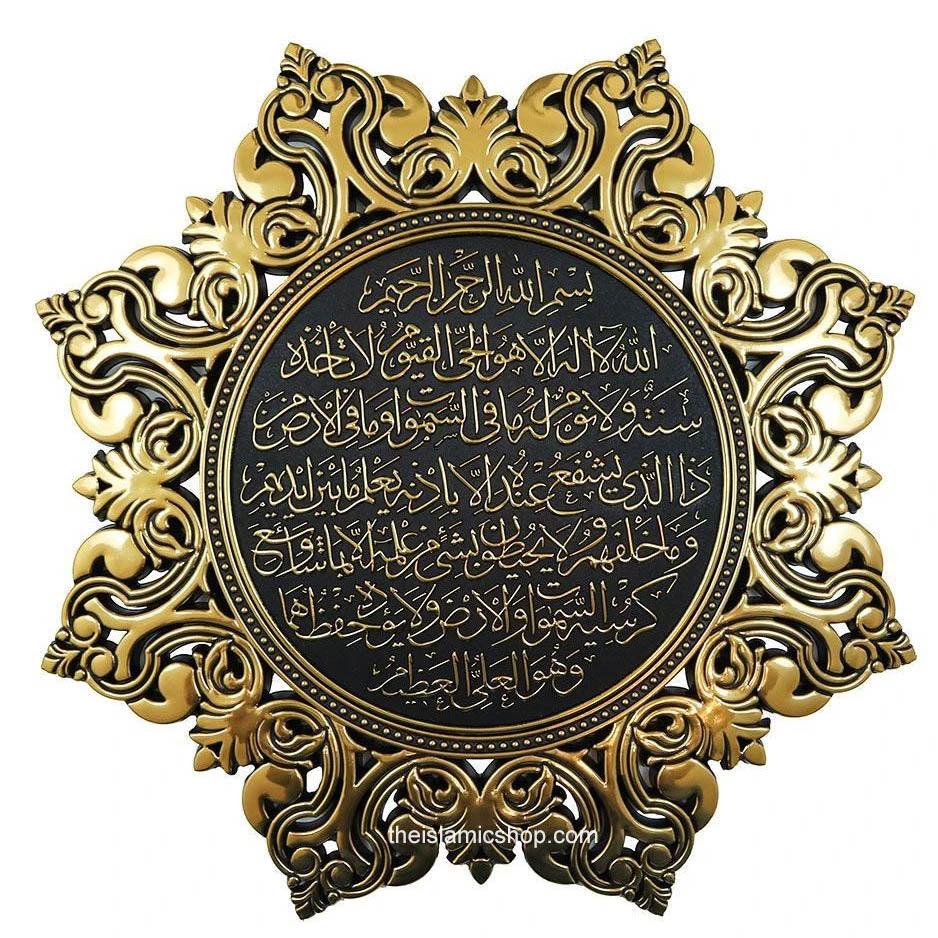 بسم الله الرحمن الرحيم
الله لا اله الا هو الحي القيوم لا تأخذه
سنة ولا نوم له ما في السموات وما في الارض من
ذا الذي يشفع عنده الا باذنه يعلم ما بين ايديهم
وما خلفهم ولا يحيطون بشئ من علمه الا بما شاء وسع
كرسيه السموات والارض ولا يؤده حفظهما
وهو العلي العظيم
theislamicshop.com